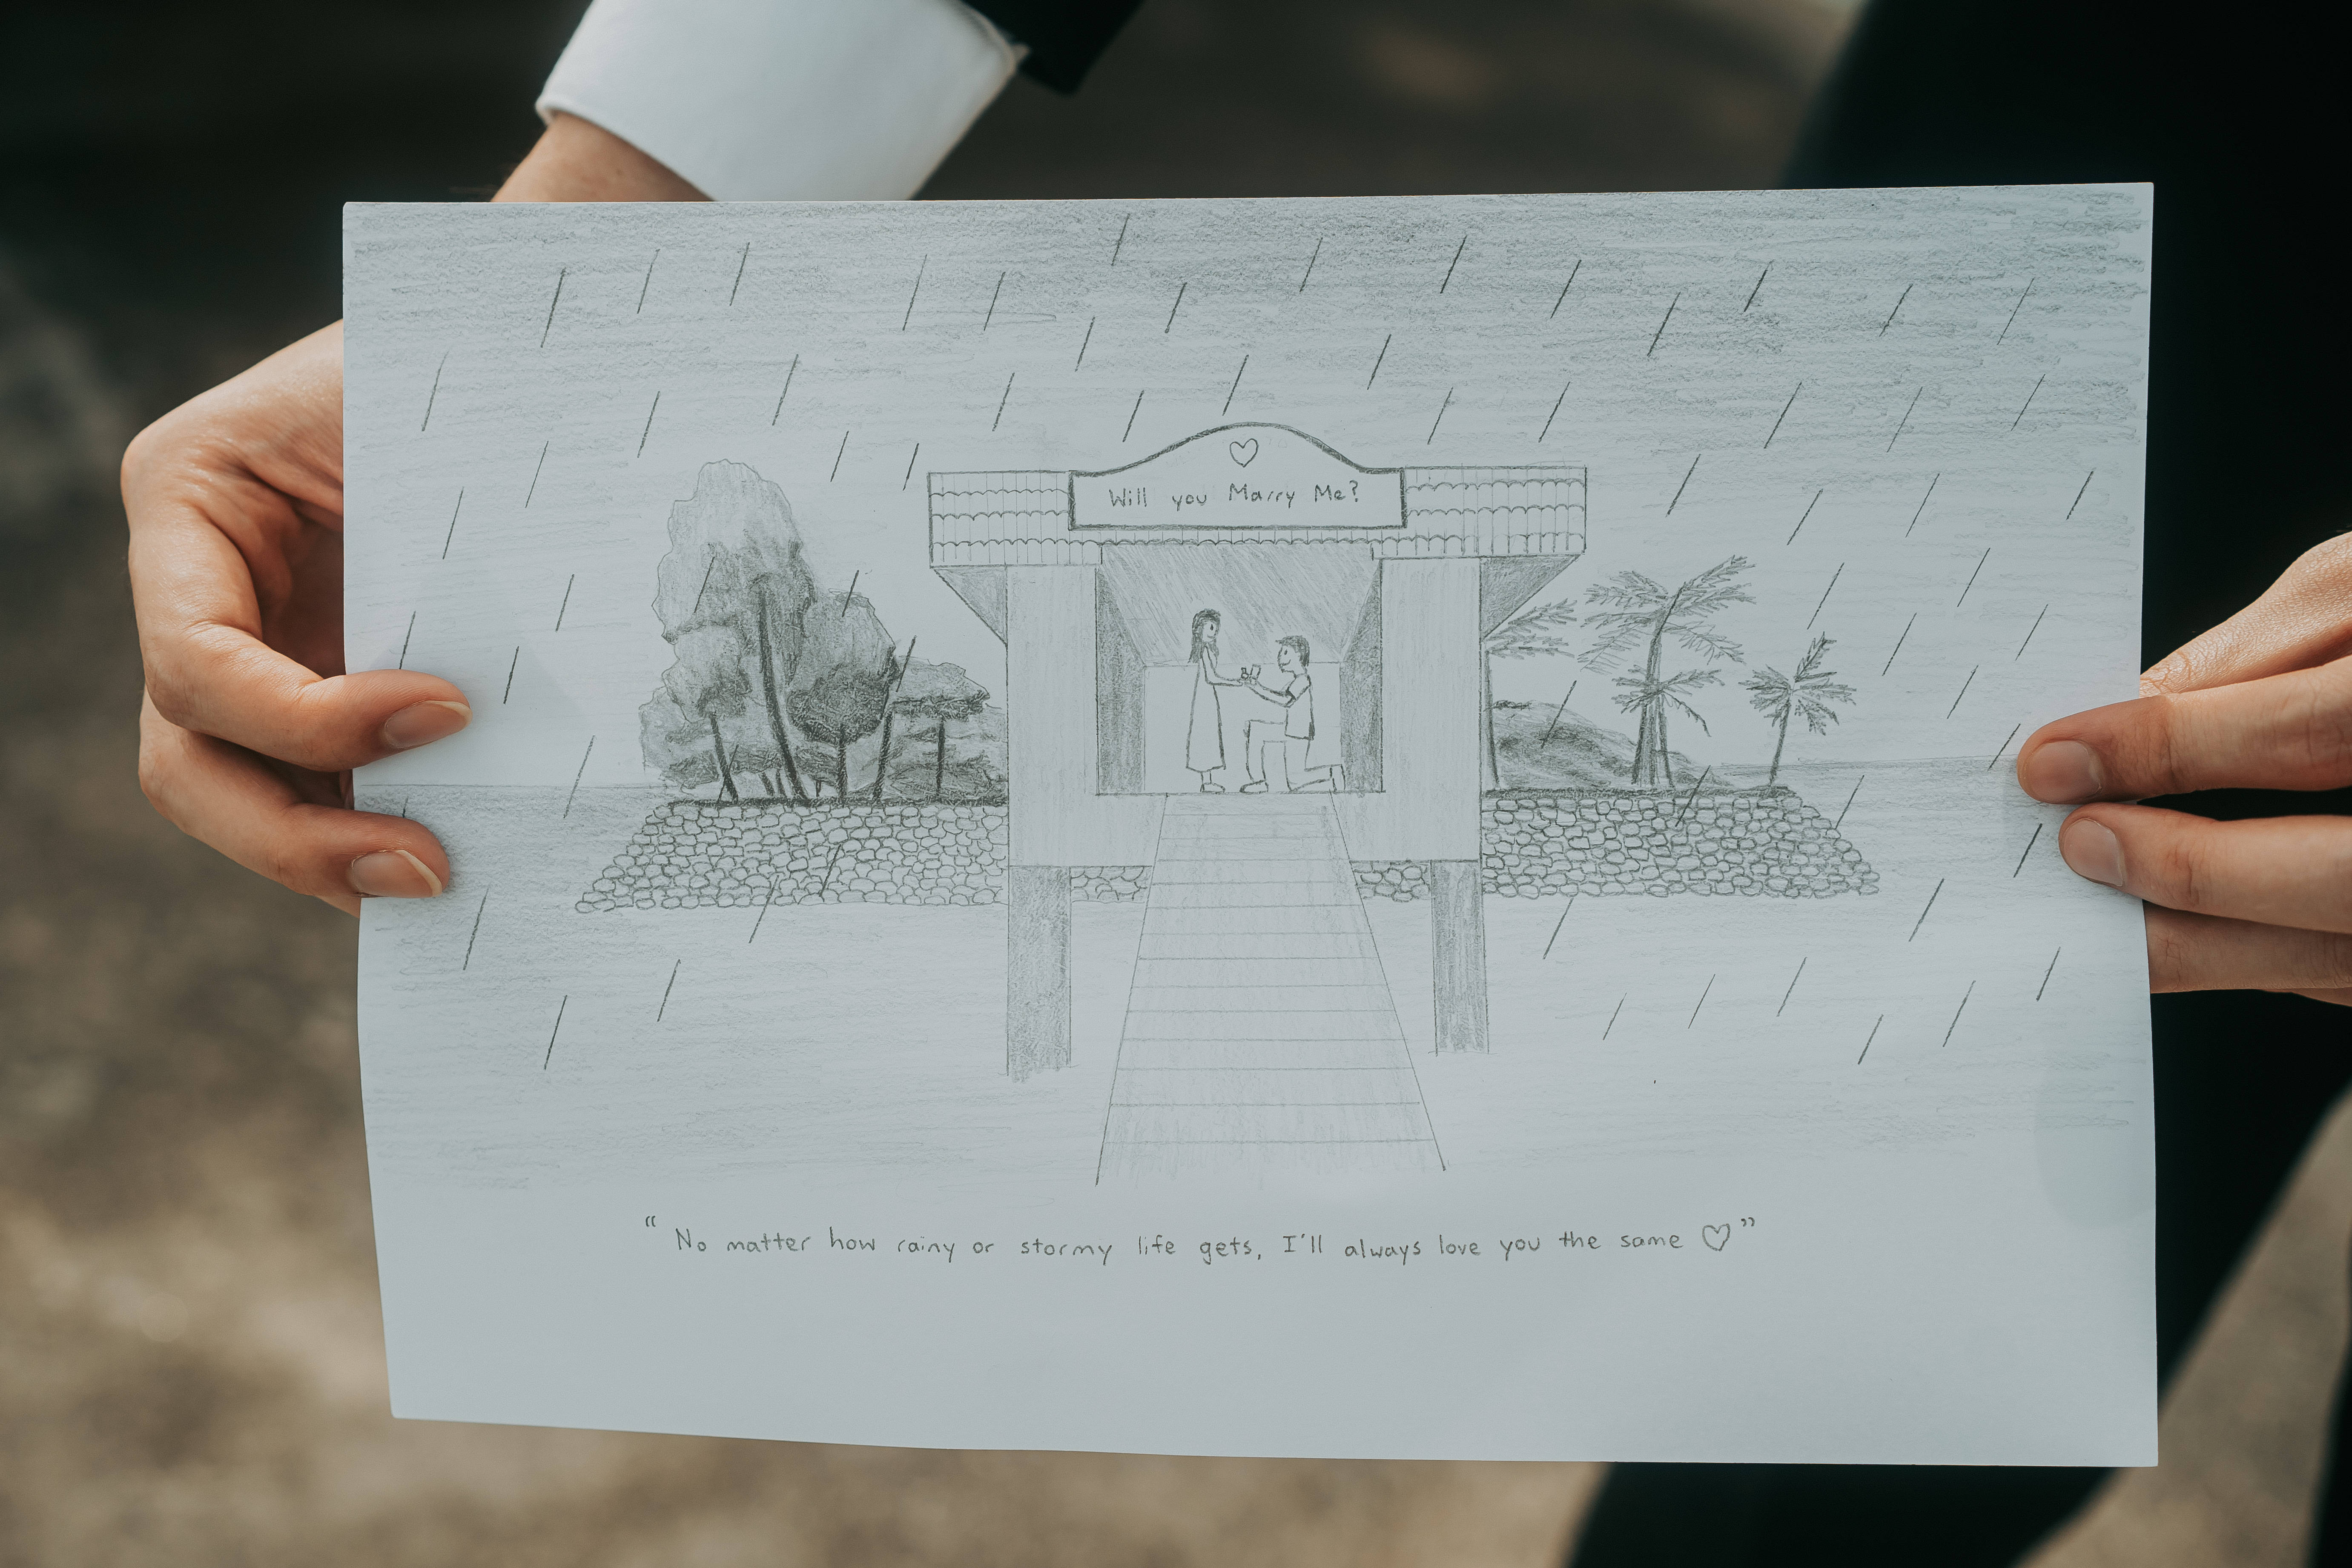 Will you Marry Me?
“ No matter how rainy or stormy life gets, I'll always love you the same ♡ ”